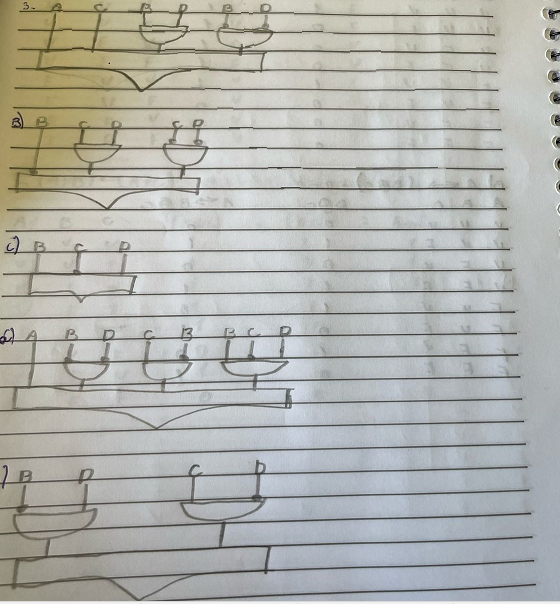 3. A C B D B D
B) B C D C D
c) B C D
d) A B D C B B C D
) B D C D